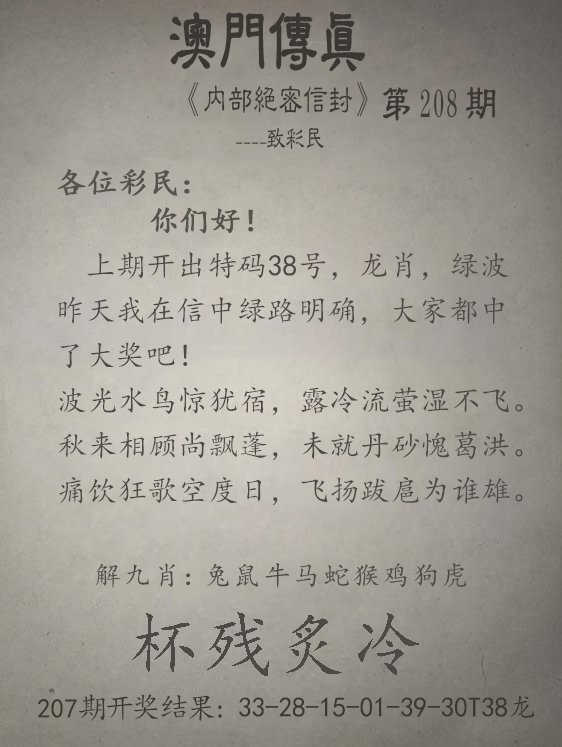 澳門傳眞
《内部絕密信封》第208期
----致彩民
各位彩民：
你们好！
上期开出特码38号，龙肖，绿波
昨天我在信中绿路明确，大家都中
了大奖吧！
波光水鸟惊犹宿，露冷流萤湿不飞。
秋来相顾尚飘蓬，未就丹砂愧葛洪。
痛饮狂歌空度日，飞扬跋扈为谁雄。
解九肖：兔鼠牛马蛇猴鸡狗虎
杯残炙冷
207期开奖结果：33-28-15-01-39-30T38龙